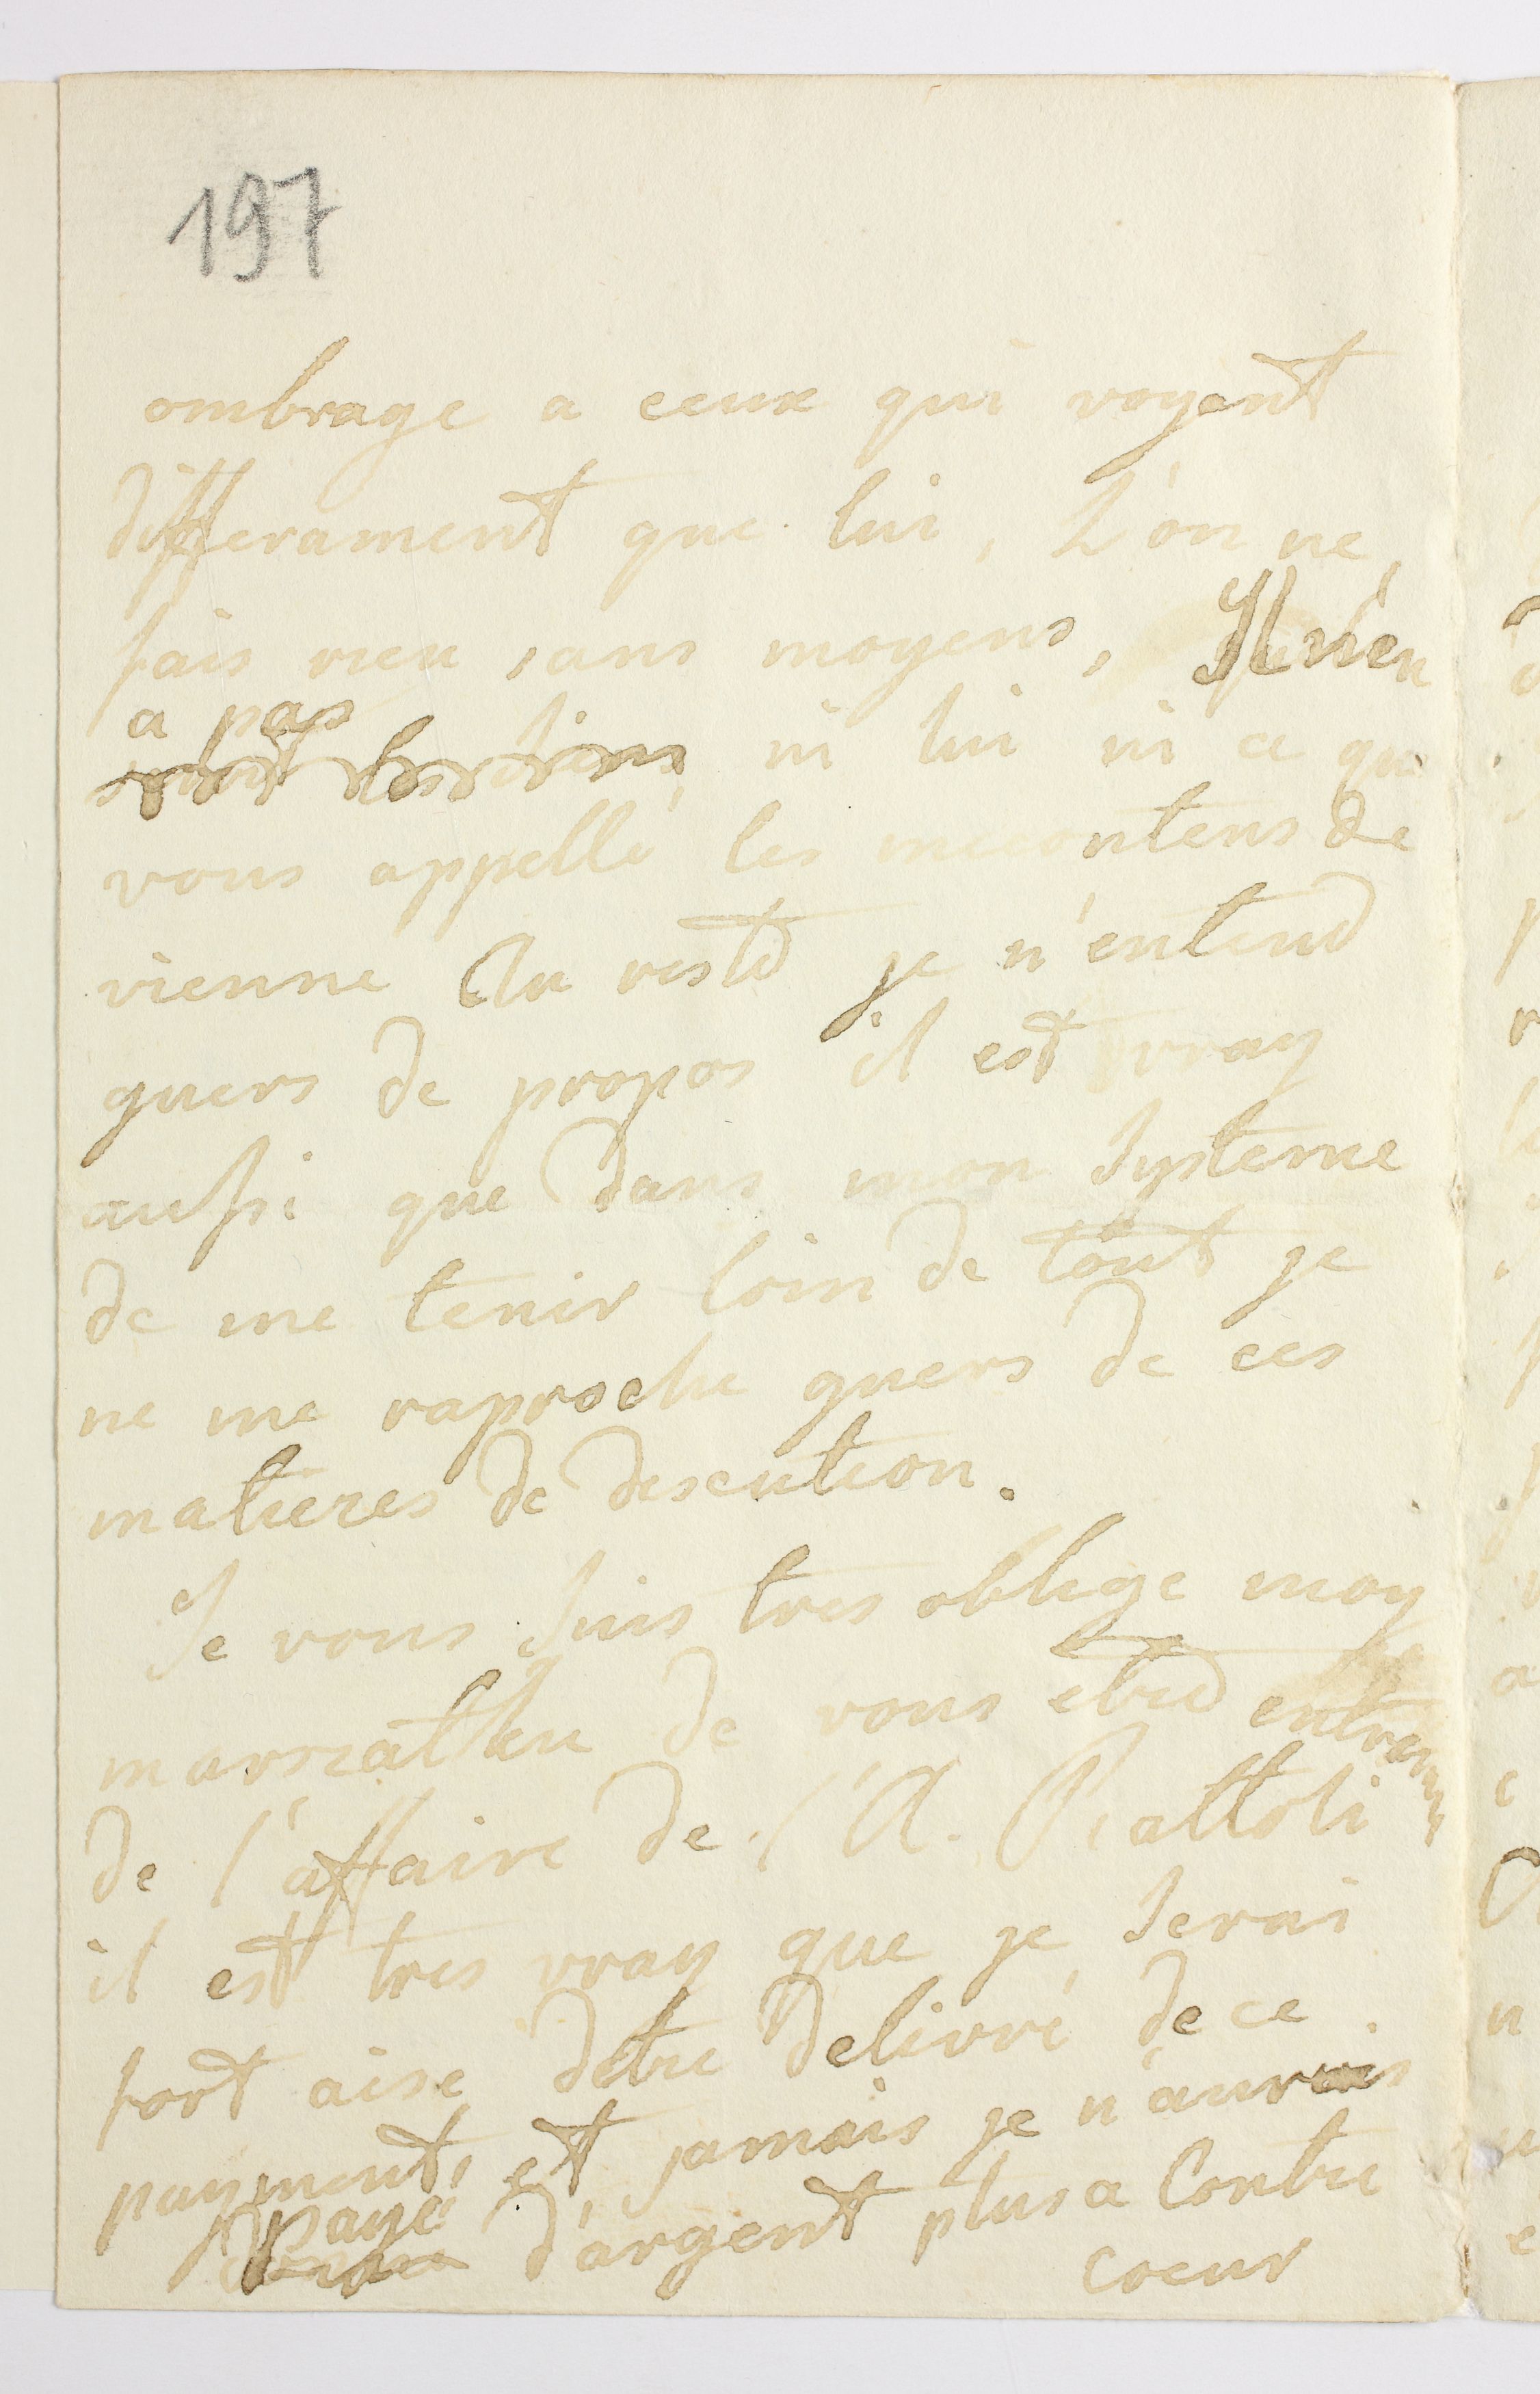 197
ombrage a ceux qui voyent
differament que lui, L'on ne
fais rien sans moyens, Il n'en
a pas
ni lui ni ce que
vous appellé les mecontens de
vienne Au reste je n'entend
guers de propos il est vray
aussi que dans mon Systeme
de me tenir loin de tout je
ne me raproche guers de ces
matieres de descution.
Je vous Suis tres oblige moy
de vous etre
de l'affaire de l'A. Piattoli
il est tres vray que je Serai
fort aise detre delivré de ce
payment, et jamais je n'aurais
payé d'argent plus a Contre
coeur